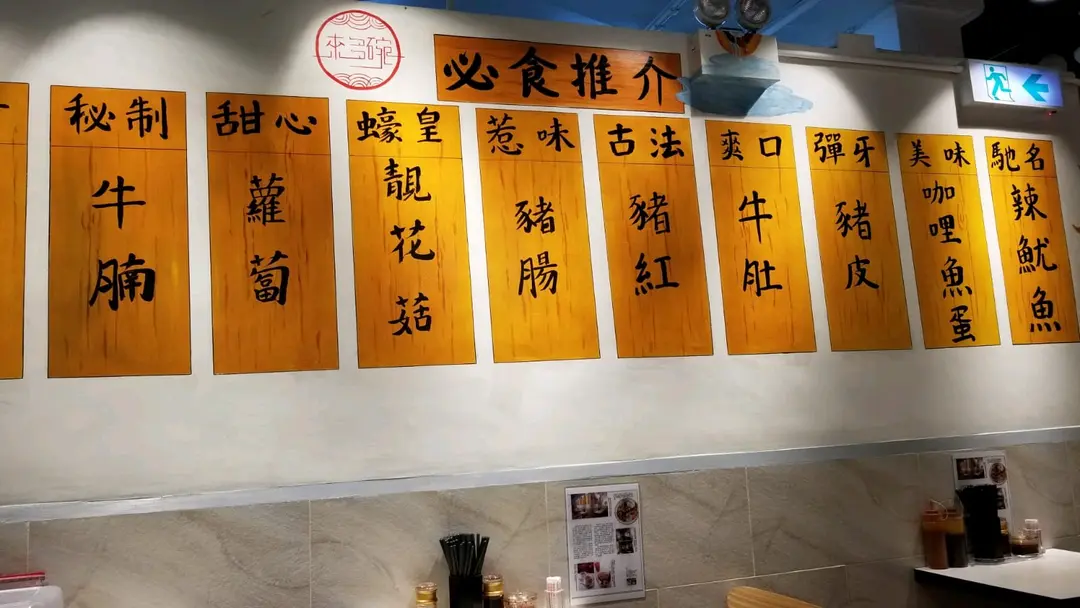 來多碗
必食推介
秘制
牛腩
甜心
蘿蔔
蠔皇
靚花菇
惹味
豬腸
古法
豬紅
爽口
牛肚
彈牙
豬皮
美味
咖哩魚蛋
馳名
辣魷魚